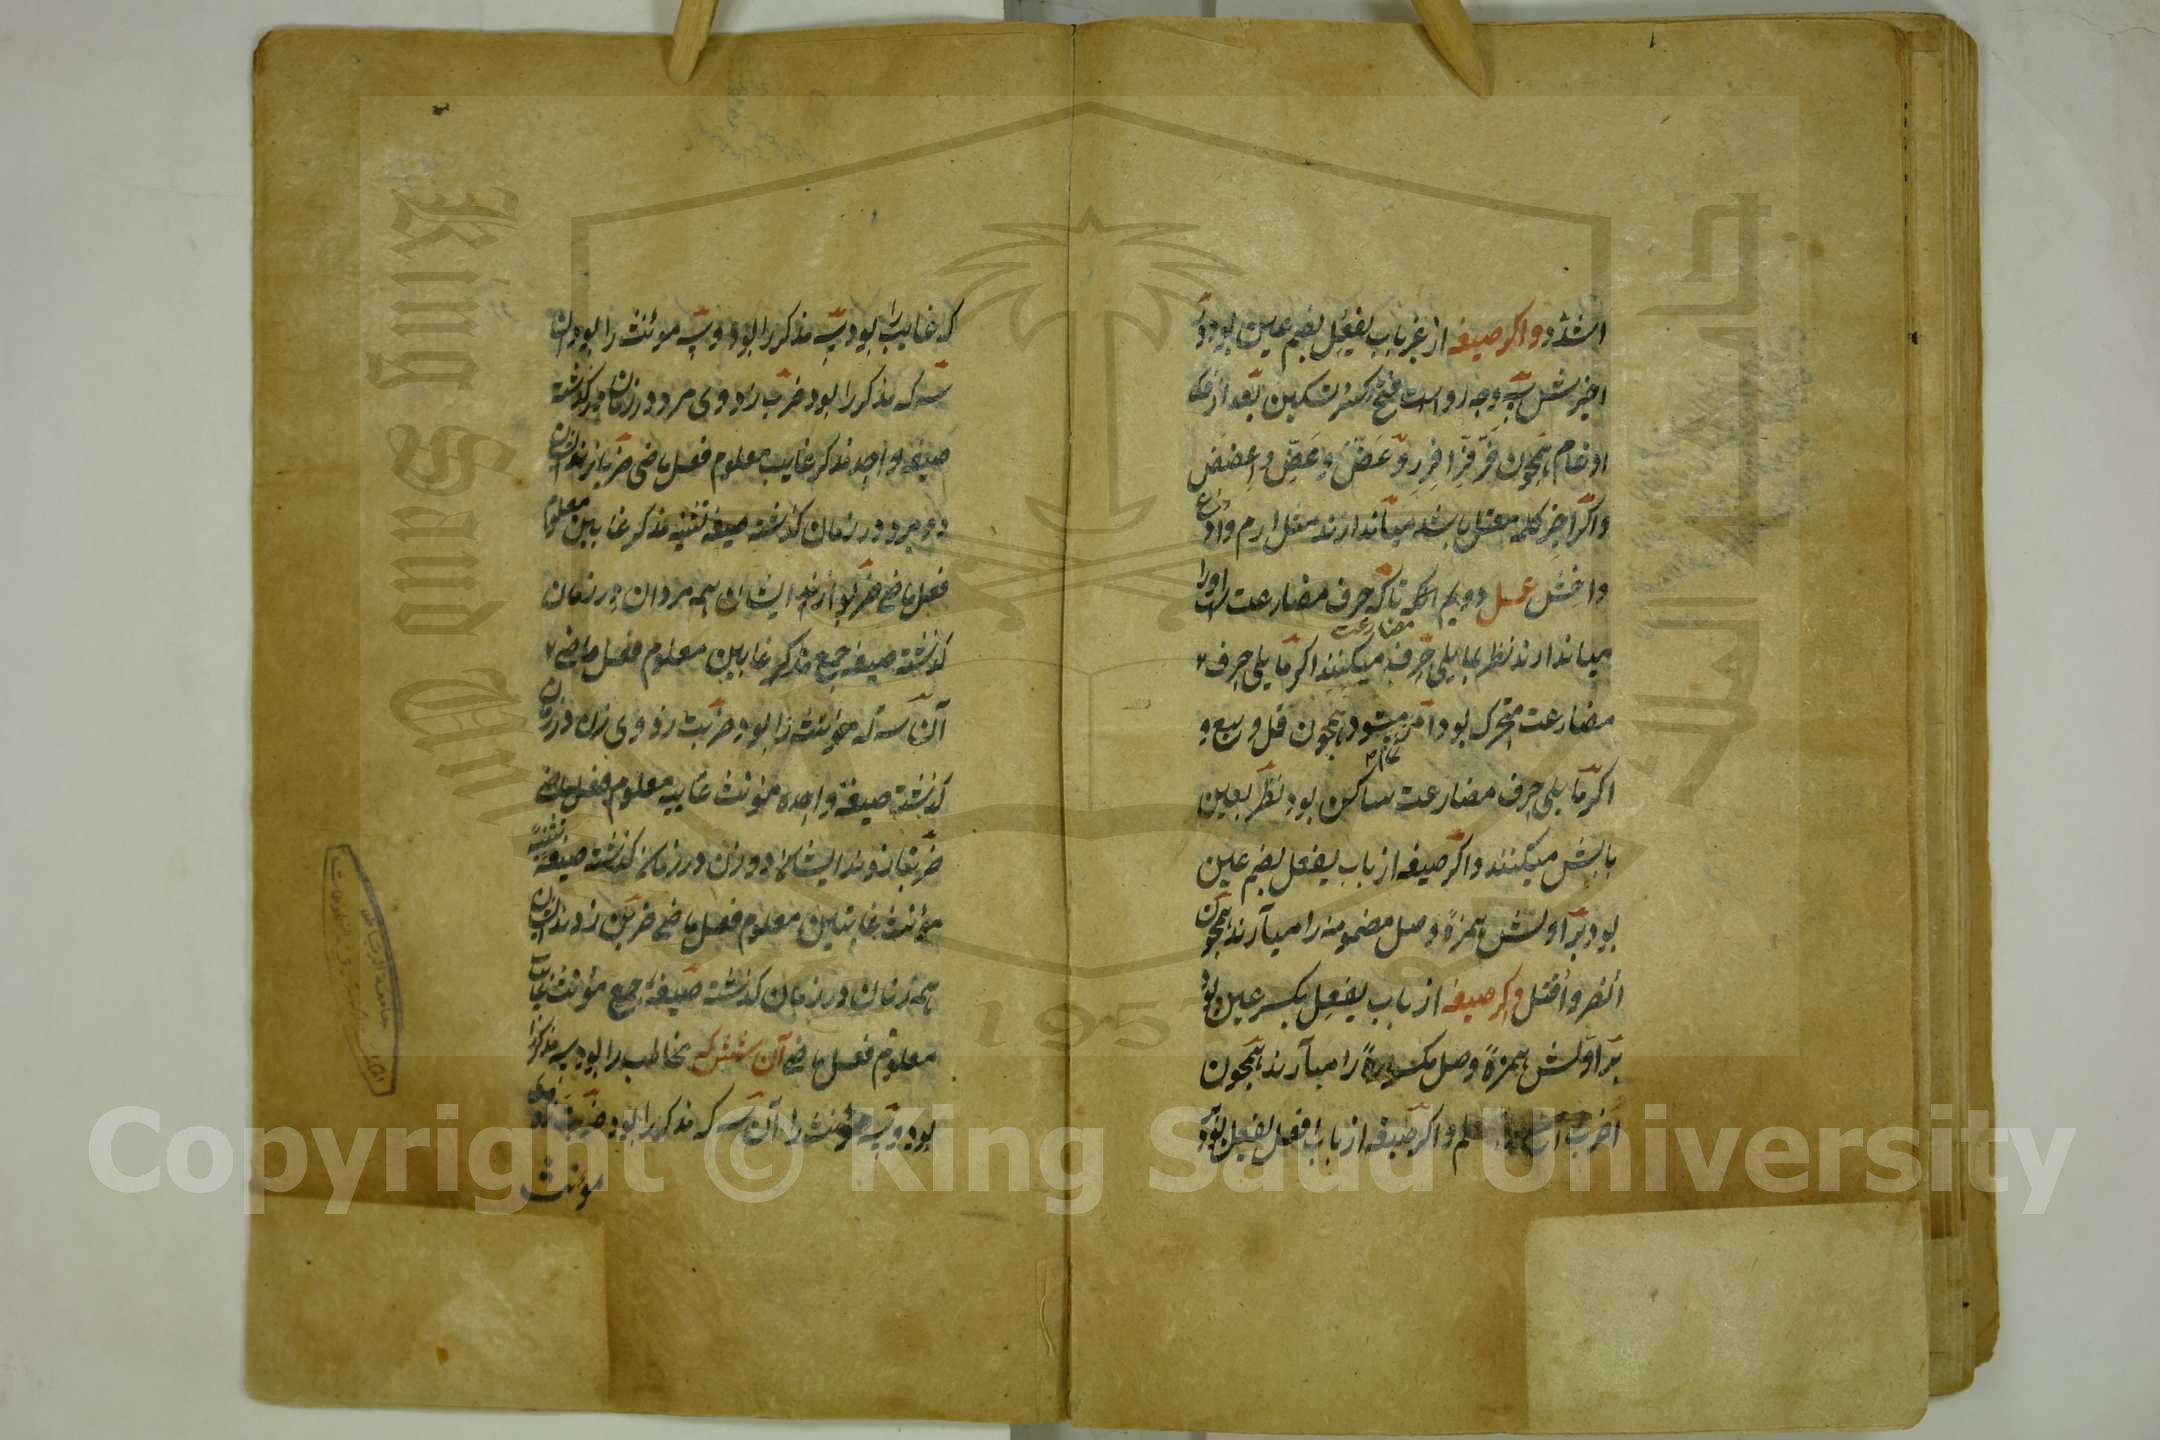 اشدد واکر صیغه از غیر باب یفعل بضم عین بود در
اخیرش سه وجه رواست فتح کسر تسکین بعد از فک
ادغام همچون فر فر افرر و عض و عض و اعضض
واکر اخیر کلمه معتل باشد میاندازند مثل ارم وادع
واخش عمل دویم آنکه تا که حرف مضارعت را
میاندازند نظر بما یلی حرف مضارعت میکنند اکر ما یلی حرف
مضارعت متحرک بود امر میشود همچون قل و بع و
اکر ما یلی حرف مضارعت ساکن بود نظر بعین
بابش میکنند واکر صیغه از باب یفعل بضم عین
بود بر اولش همزهٔ وصل مضمومه را میآرند همچون
انصر واقتل واکر صیغه از باب یفعل بکسر عین بود
بر اولش همزهٔ وصل مکسورهٔ را میآرند همچون
اضرب واکر صیغه از باب یفعل بود
که غایب را بود سه مذکر را بود و سه مونث را بود آن
سه که مذکر را بود ضرب زد وی مرد در زمان کذشته
صیغه واحد مذکر غایب معلوم فعل ماضی ضربا زدند ایشان
دو مرد در زمان کذشته صیغه تثنیه مذکر غایبین معلوم
فعل ماضی ضربوا زدند ایشان همه مردان در زمان
کذشته صیغه جمع مذکر غایبین معلوم فعل ماضی
آن سه که مؤنث را بود ضربت زد وی زن در زمان
کذشته صیغهٔ واحده مؤنث غایبه معلوم فعل ماضی
ضربتا زدند ایشان دو زن در زمان کذشته صیغه تثنیه
مؤنث غایبتین معلوم فعل ماضی ضربن زدند ایشان
همه زنان در زمان کذشته صیغهٔ جمع مؤنث غایبات
معلوم فعل ماضی آن شش که مخاطب را بود سه مذکر را
بود و سه مؤنث را آن سه که مذکر را بود ضربت
مونث
King Saud University
جامعة الملك سعود
1957
Copyright © King Saud University